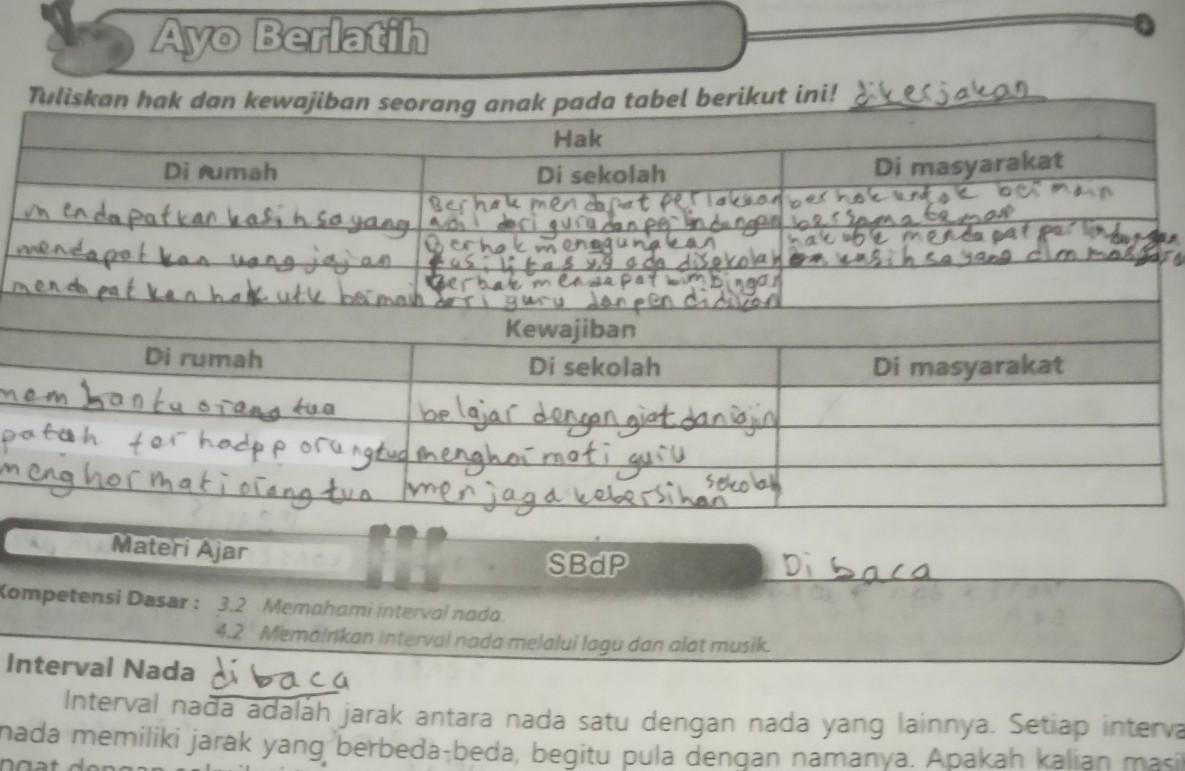 Ayo Berlatih
Tuliskan hak dan kewajiban seorang anak pada tabel berikut ini! dikerjakan
Hak
Di rumah Di sekolah Di masyarakat
mendapatkan kasih sayang
mendapatkan uang jajan
mendapatkan hak utk bermain
Berhak mendapat perlakuan
adil dari guru dan perlindungan
Berhak menggunakan
fasilitas yg ada disekolah
Berhak mendapat bimbingan
dari guru dan pendidikan
berhak untuk bermain
bersama teman
hak mendapat perlindungan
kasih sayang dlm
Kewajiban
Di rumah Di sekolah Di masyarakat
membantu orang tua belajar dengan giat dan rajin
patuh terhadap orangtua menghormati guru
menghormati orang tua menjaga kebersihan sekolah
Materi Ajar SBdP Di baca
Kompetensi Dasar : 3.2 Memahami interval nada.
4.2 Memainkan interval nada melalui lagu dan alat musik.
Interval Nada di baca
Interval nada adalah jarak antara nada satu dengan nada yang lainnya. Setiap interva
nada memiliki jarak yang berbeda-beda, begitu pula dengan namanya. Apakah kalian masi